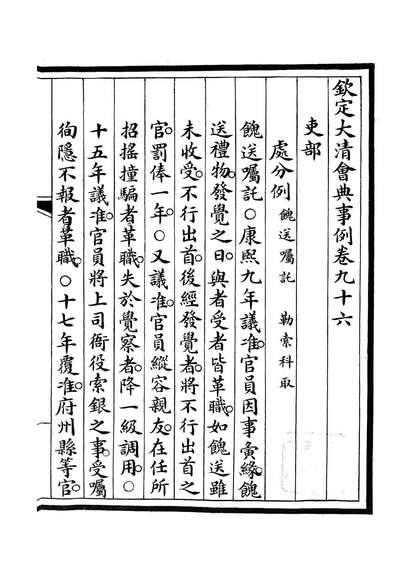 欽定大清會典事例卷九十六
吏部
處分例 餽送囑託 勒索科取
餽送囑託○康熙九年議准官員因事夤緣餽
送禮物發覺之日與者受者皆革職如餽送雖
未收受不行出首後經發覺者將不行出首之
官罰俸一年○又議准官員縱容親友在任所
招搖撞騙者革職失於覺察者降一級調用○
十五年議准官員將上司衙役索銀之事受囑
徇隱不報者革職○十七年覆准府州縣等官